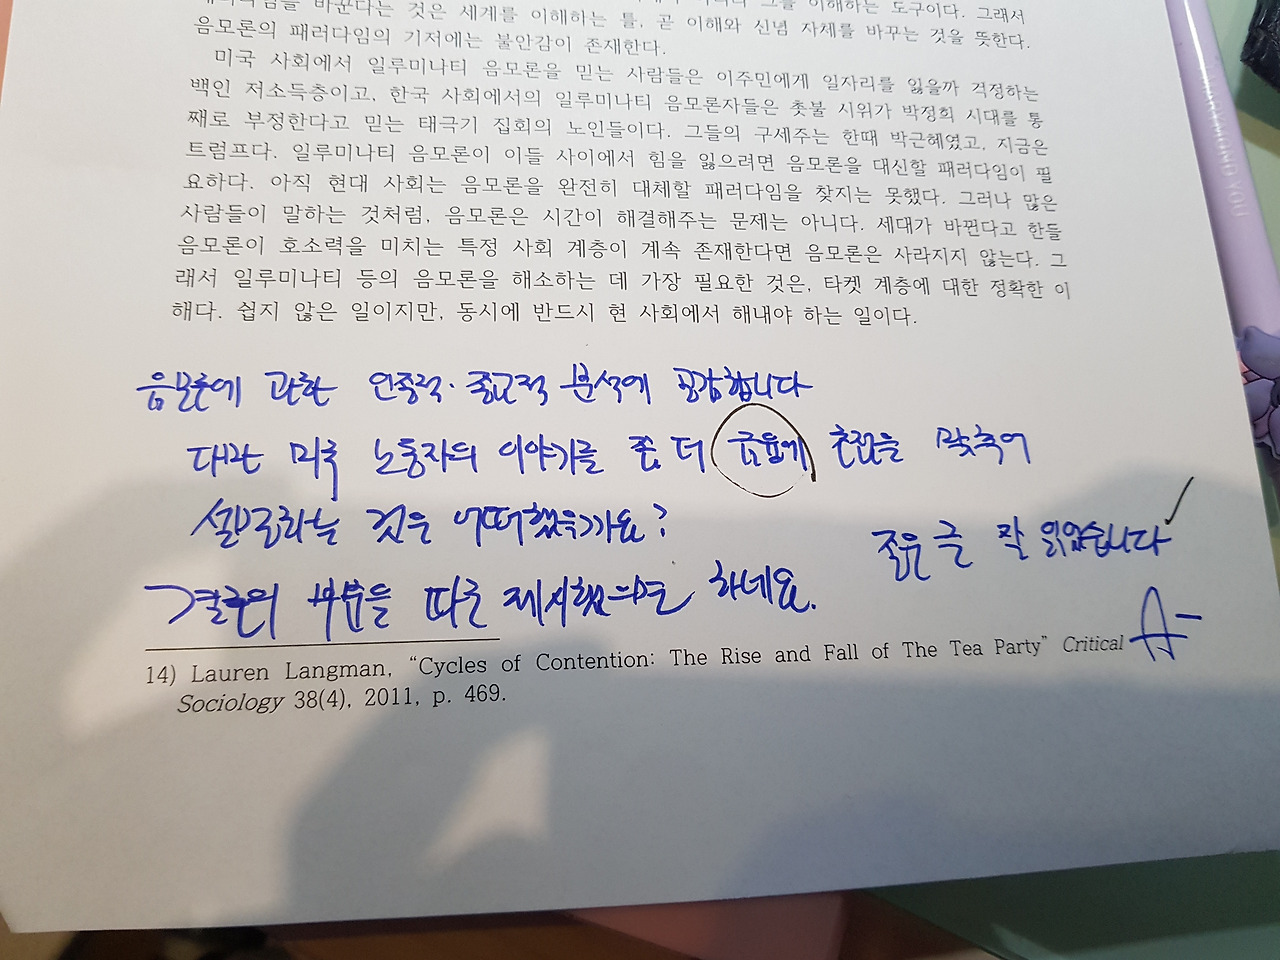 이해하는 도구이다. 그래서
바꾼다는 것은 세계를 이해하는 틀, 곧 이해와 신념 자체를 바꾸는 것을 뜻한다.
음모론의 패러다임의 기저에는 불안감이 존재한다.
미국 사회에서 일루미나티 음모론을 믿는 사람들은 이주민에게 일자리를 잃을까 걱정하는
백인 저소득층이고, 한국 사회에서의 일루미나티 음모론자들은 촛불 시위가 박정희 시대를 통
째로 부정한다고 믿는 태극기 집회의 노인들이다. 그들의 구세주는 한때 박근혜였고, 지금은
트럼프다. 일루미나티 음모론이 이들 사이에서 힘을 잃으려면 음모론을 대신할 패러다임이 필
요하다. 아직 현대 사회는 음모론을 완전히 대체할 패러다임을 찾지는 못했다. 그러나 많은
사람들이 말하는 것처럼, 음모론은 시간이 해결해주는 문제는 아니다. 세대가 바뀐다고 한들
음모론이 호소력을 미치는 특정 사회 계층이 계속 존재한다면 음모론은 사라지지 않는다. 그
래서 일루미나티 등의 음모론을 해소하는 데 가장 필요한 것은, 타켓 계층에 대한 정확한 이
해다. 쉽지 않은 일이지만, 동시에 반드시 현 사회에서 해내야 하는 일이다.
음모론에 관한 인종적·종교적 분석에 공감합니다
미국 노동자의 이야기를 좀 더 금융에 초점을 맞추어
것은 어떠했을까요?
좋은 글 잘 읽었습니다
결론의 부분을 따로 제시했으면 하네요.
A-
14) Lauren Langman, “Cycles of Contention: The Rise and Fall of The Tea Party” Critical
Sociology 38(4), 2011, p. 469.